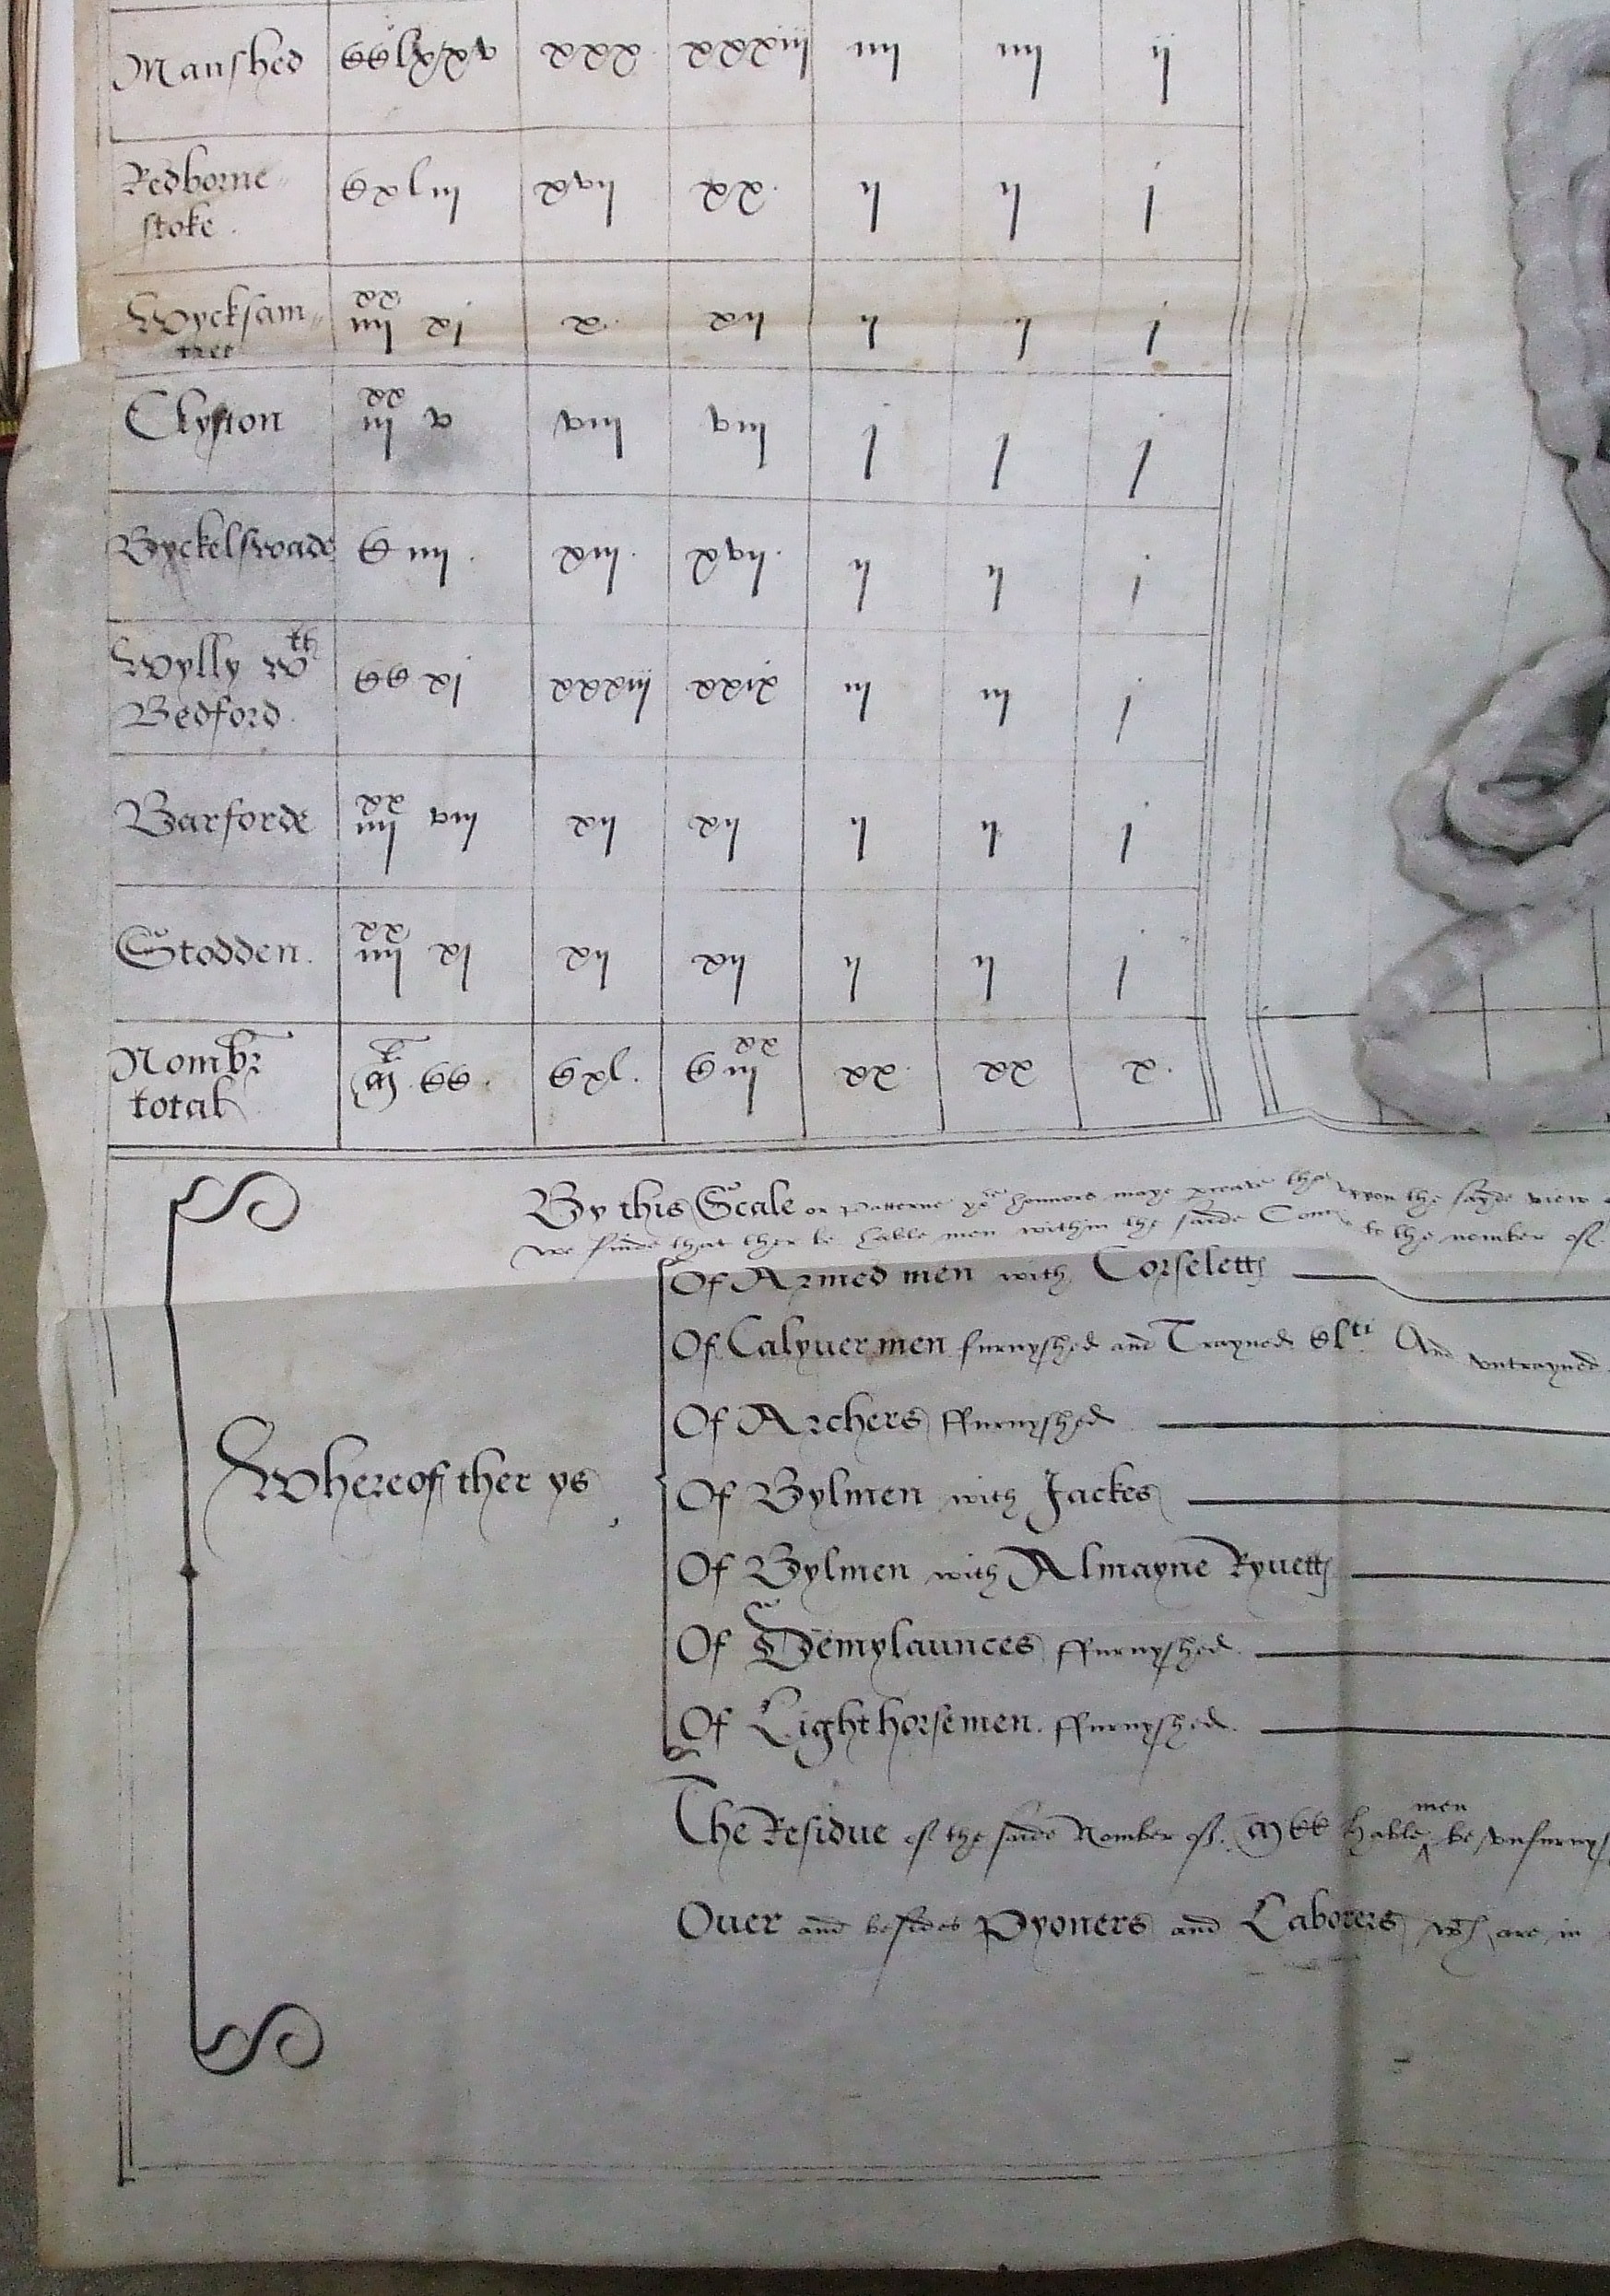 Manshed CClxxxv xxx xxxiiij iiij iiij ij
Redborne
stoke. Cxliij xvij xx. ij ij j
Wycksam
tree iiijxx xj x. xij ij ij j
Clyfton iiijxx v viij viij j j j
Byckelswade C iiij. xiij. xvij. ij ij j
Wylly wth
Bedford. CC xj xxxiiij xxix iij iij j
Barforde iiijxx viij xij xij ij ij j
Stodden. iiijxx xj xij xij ij ij j
Nombr
total M CC. Cxl. C iiijxx xx. xx x.
By this Scale or Patterne yor honnors maye the vppon the sayde view
we finde that ther be hable men within the saide to the nomber of.
Of Armed men with Corselett
Of Calyuer men furnyshed and Trayned Clti. And vntrayned
Of Archers ffurnyshed
Whereof ther ys
Of Bylmen with Jackes
Of Bylmen with Almayne Ryuett
Of Demylaunces ffurnyshed.
Of Lighthorsemen. ffurnyshed.
The Residue of the saide Nomber of. M CC hable men be vnfurnys
Ouer and besides Pyoners and Laborers wch are in